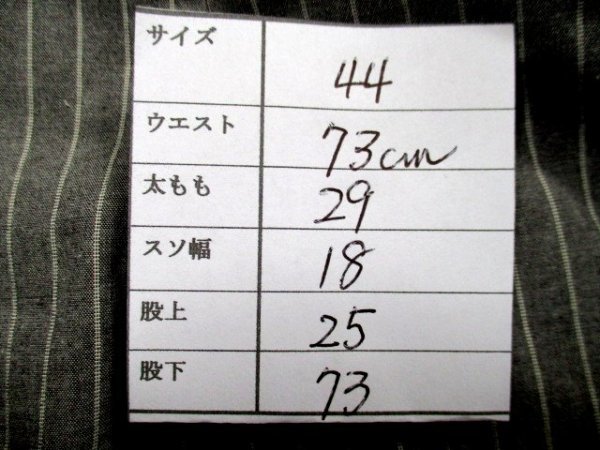 サイズ 44
ウエスト 73cm
太もも 29
スソ幅 18
股上 25
股下 73